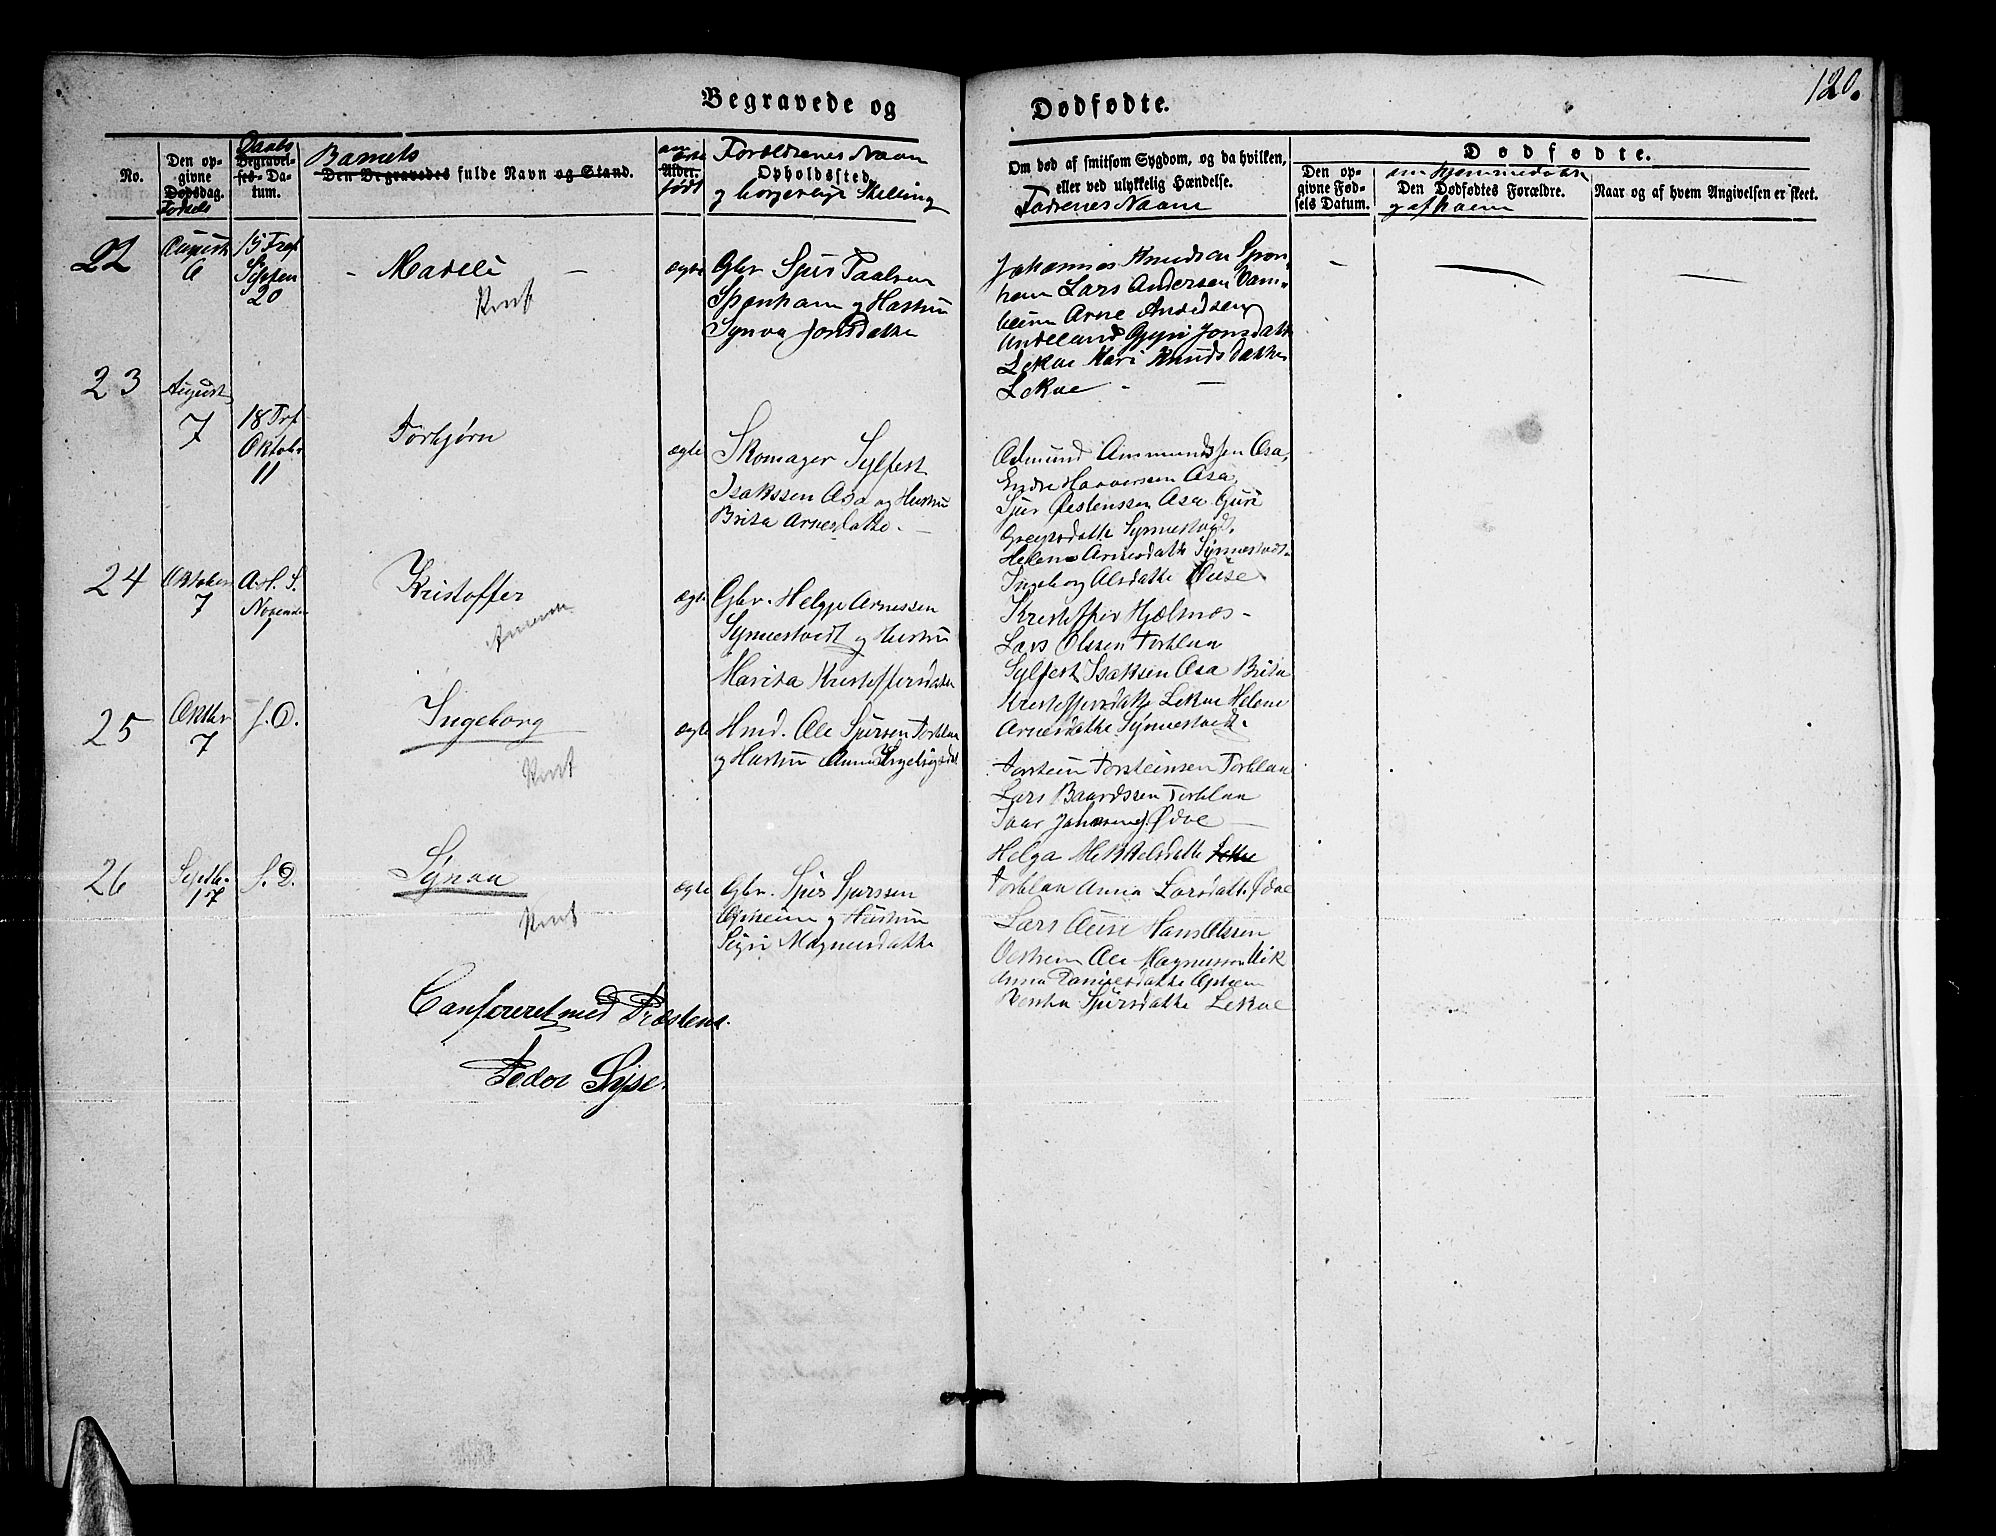 120.
Begravede og Dødfødte.
No.
Den op-
givne
Dødsdag.
Fødsels
Daabs
Begravel-
ses-Da-
tum.
Barnets
Den Begravedes fulde Navn og Stand.
om
ægte
Alder.
født
Forældrenes Navn
Opholdssted
og borgerlige Stilling
Om død af smitsom Sygdom, og da hvilken,
eller ved ulykkelig Hændelse.
Fadrenes Navne
Dødfødte.
Den op-
givne Fød-
sels Datum.
om hjemmedøbt
Den Dødfødtes Forældre.
og af hvem
Naar og af hvem Angivelsen er skeet.
22
August
6
15 Tref
S.
Septem
20
- Madeli -
Vent
ægte
Gbr. Sjur Paalsen
Spønheim og Hustru
Synva Jonsdatte
Johannes Knudsen Spøn-
heim Lars Andersen Vam-
heim Arne Andersen
Undeland Gyri Jonsdatte
Lekve Mari Knudsdatte
Lekve - -
23
August
7
18 Tref
Oktober
11
Torbjørn
ægte
Skomager Sylfest
Isakssen Osa og Hustru
Brita Arnesdatte. -
Odmund Ammundssen Osa,
Endre Haaversen Osa,
Sjur Østenssen Osa Guri
Greipsdatte Synnestvedt.
Helene Arnesdatte Synnestvedt-
24
Oktober
7
A.H. S.
November
1
Kristoffer
ægte
Gbr. Helge Arnessen
Synnestvedt og Hustru
Marita Kristoffersdatte
Ingeborg Olsdatte Ouse
Kristoffer Hjælmos-
Lars Olssen Torblaa
Sylfest Isaksen Osa Brita
Kristoffersdatte Lekve Helene
Arnesdatte Synnestvedt.
25
Oktbr
7
s. D.
Ingeborg
Vent
ægte
Hmd. Ole Sjursen Torblaa
og Hustru Anna Ingebrigtsdat
Torstein Torsteinsen Torblaa
Lars Baardssen Torblaa
Ivar Johannes. Ødve
Helga Mikkelsdatte
Torblaa Anna Larsdatte Ødve
26
Septbr.
17
S. D.
Synva
Vent
ægte
Gbr. Sjur Sjurssen
Opheim og Hustru
Sigri Magnusdatte
Lars Ouse Hans Olssen
Vestrem Ole Magnussen Vik
Anna Danielsdatte Opheim
Sjursdatte Lekve
Confereret med Præstens.
Peder Syse.